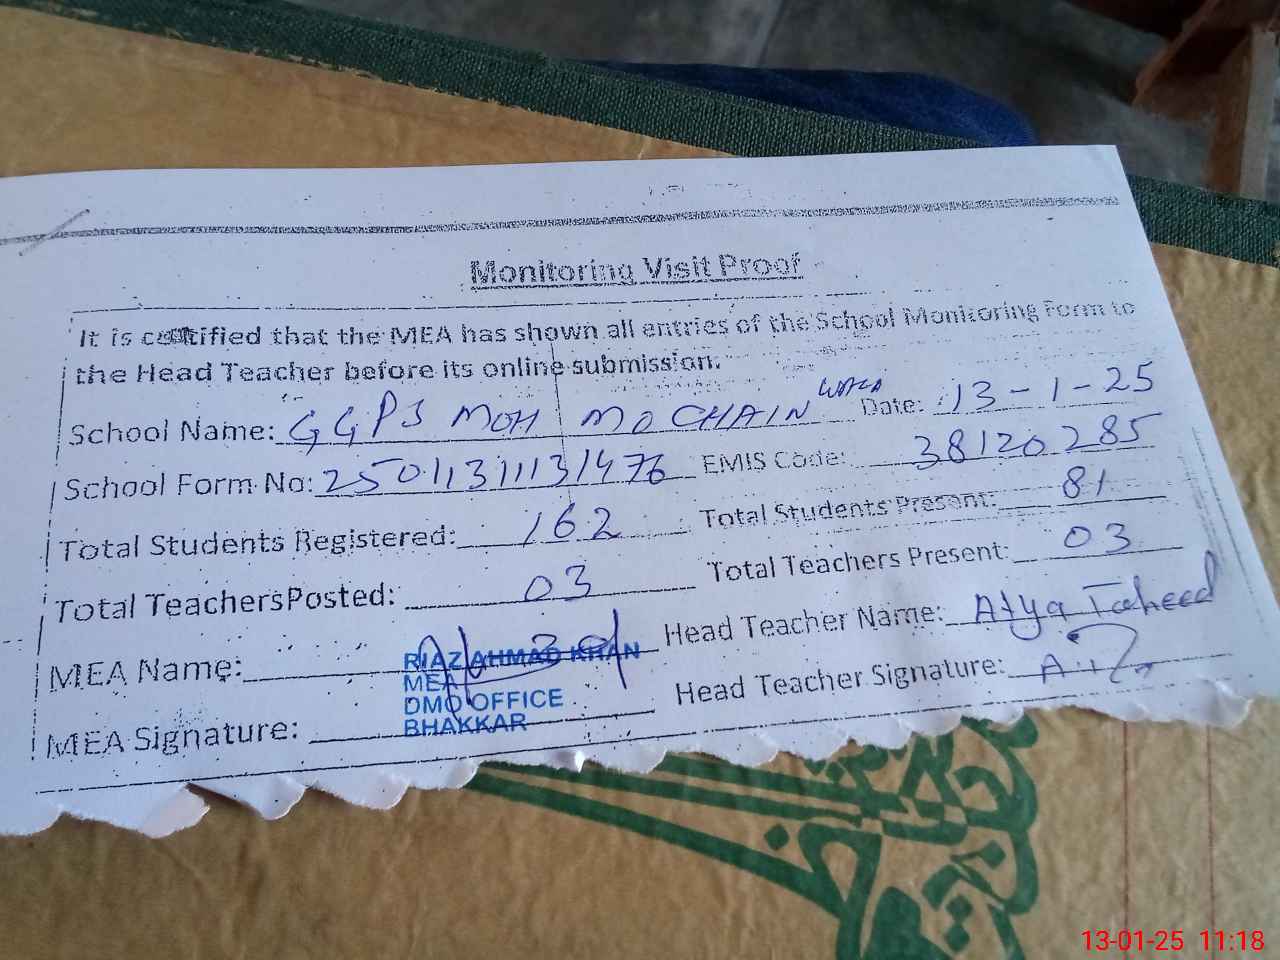 Monitoring Visit Proof
It is certified that the MEA has shown all entries of the School Monitoring Form to
the Head Teacher before its online submission.
School Name: GGPS MOH MOCHAIN WALA Date: 13-1-25
School Form No: 25011311131476 EMIS Code: 38120285
Total Students Registered: 162 Total Students Present: 81
Total TeachersPosted: 03 Total Teachers Present: 03
MEA Name: RIAZ AHMAD KHAN Head Teacher Name:
MEA
DMO OFFICE
MEA Signature: BHAKKAR Head Teacher Signature:
13-01-25 11:18